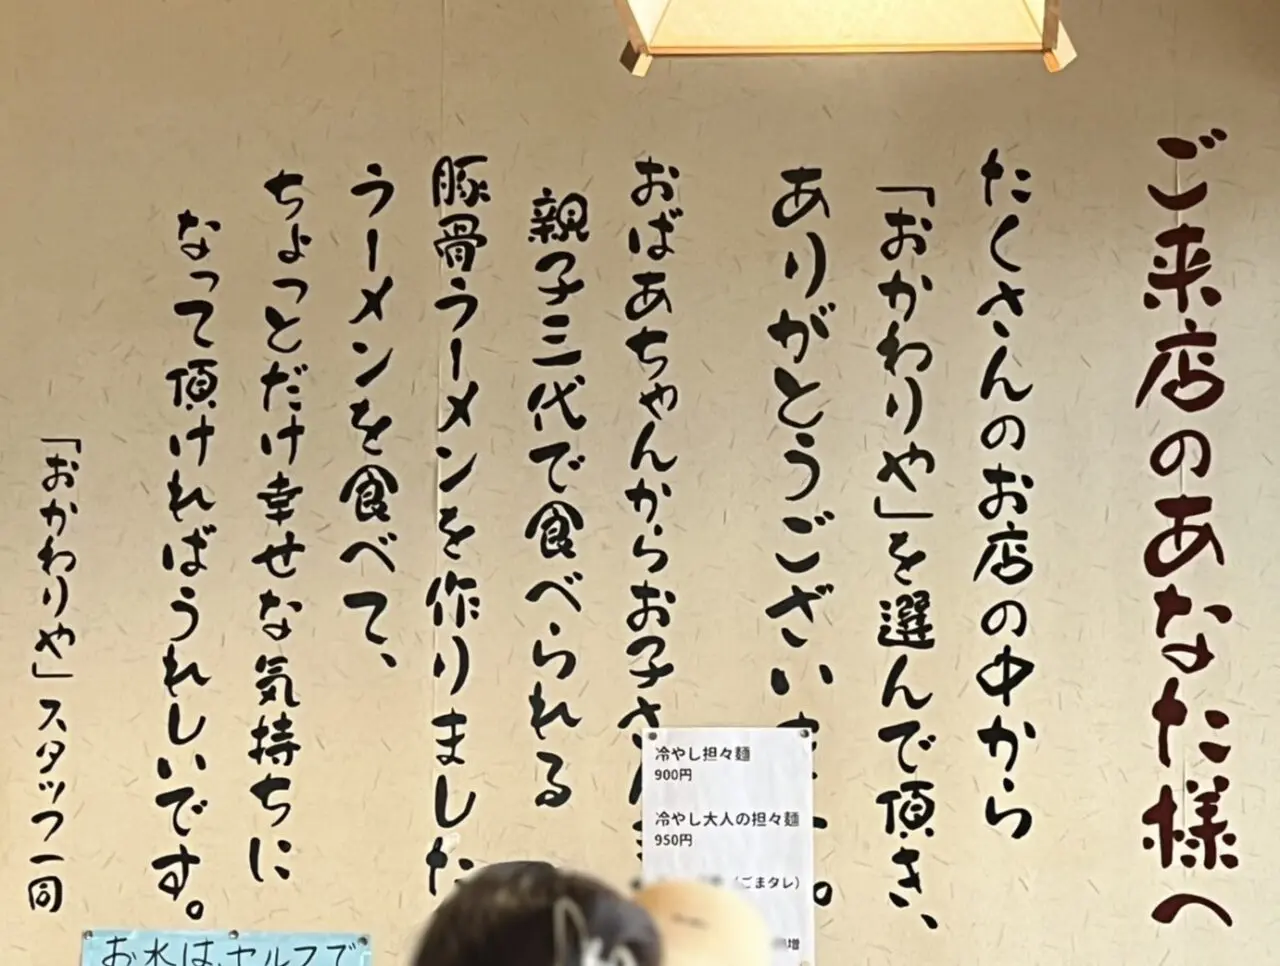 ご来店のあなた様へ
たくさんのお店の中から
「おかわりや」を選んで頂き、
ありがとうござい
おばあちゃんからお子さ
親子三代で食べられる
豚骨ラーメンを作りました
ラーメンを食べて、
ちょっとだけ幸せな気持ちに
なって頂ければうれしいです。
「おかわりや」スタッフ一同
冷やし担々麺
900円
冷やし大人の担々麺
950円
(ごまタレ)
増
お水は、セルフで